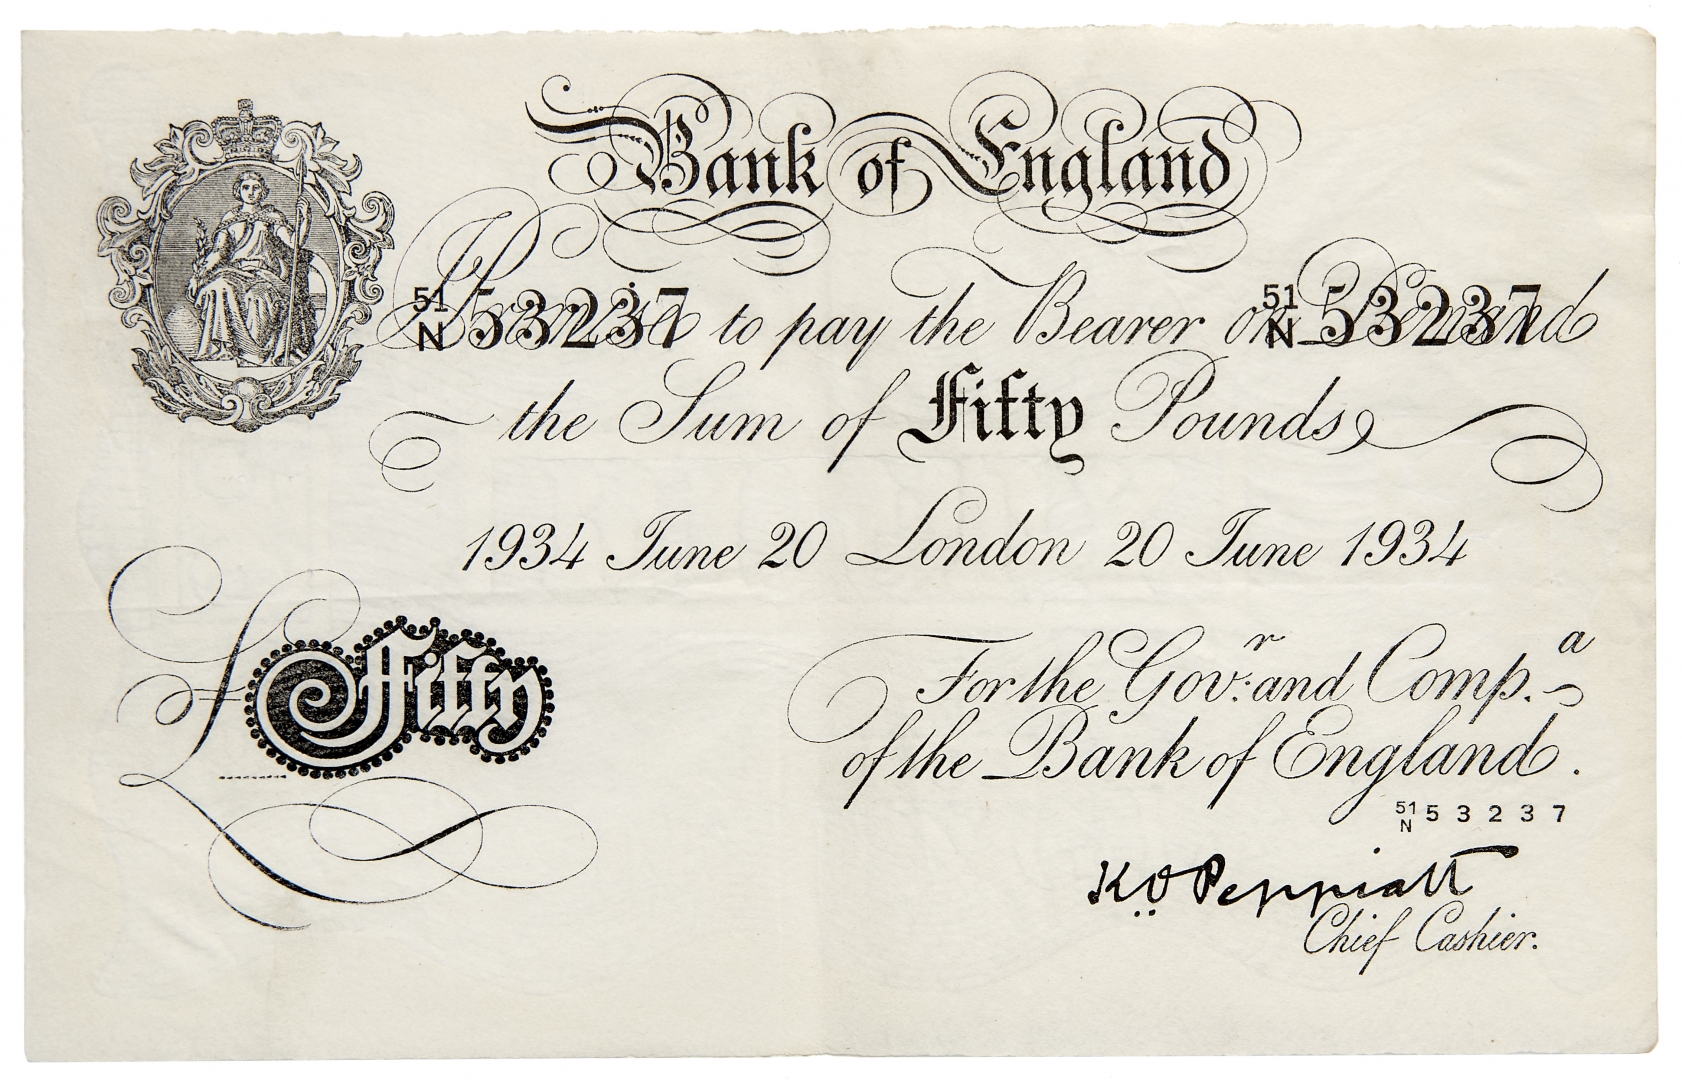 Bank of England
51/N 53237 51/N 53237
I Promise to pay the Bearer on Demand
the Sum of Fifty Pounds
1934 June 20 London 20 June 1934
£Fifty
For the Gov.r and Comp.a
of the Bank of England.
51/N 53237
K.O. Peppiatt
Chief Cashier.